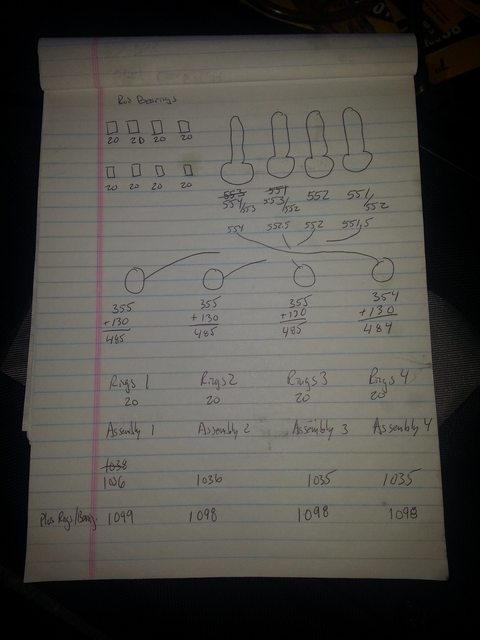 Rod Bearings
20 20 20 20
20 20 20 20
553 551
554/553 553/552 552 551/552
554 552.5 552 551.5
355 355 355 354
+130 +130 +130 +130
485 485 485 484
Rings 1 Rings 2 Rings 3 Rings 4
20 20 20 20
Assembly 1 Assembly 2 Assembly 3 Assembly 4
1038
1036 1036 1035 1035
Plus Rings/Bearings 1099 1098 1098 1098